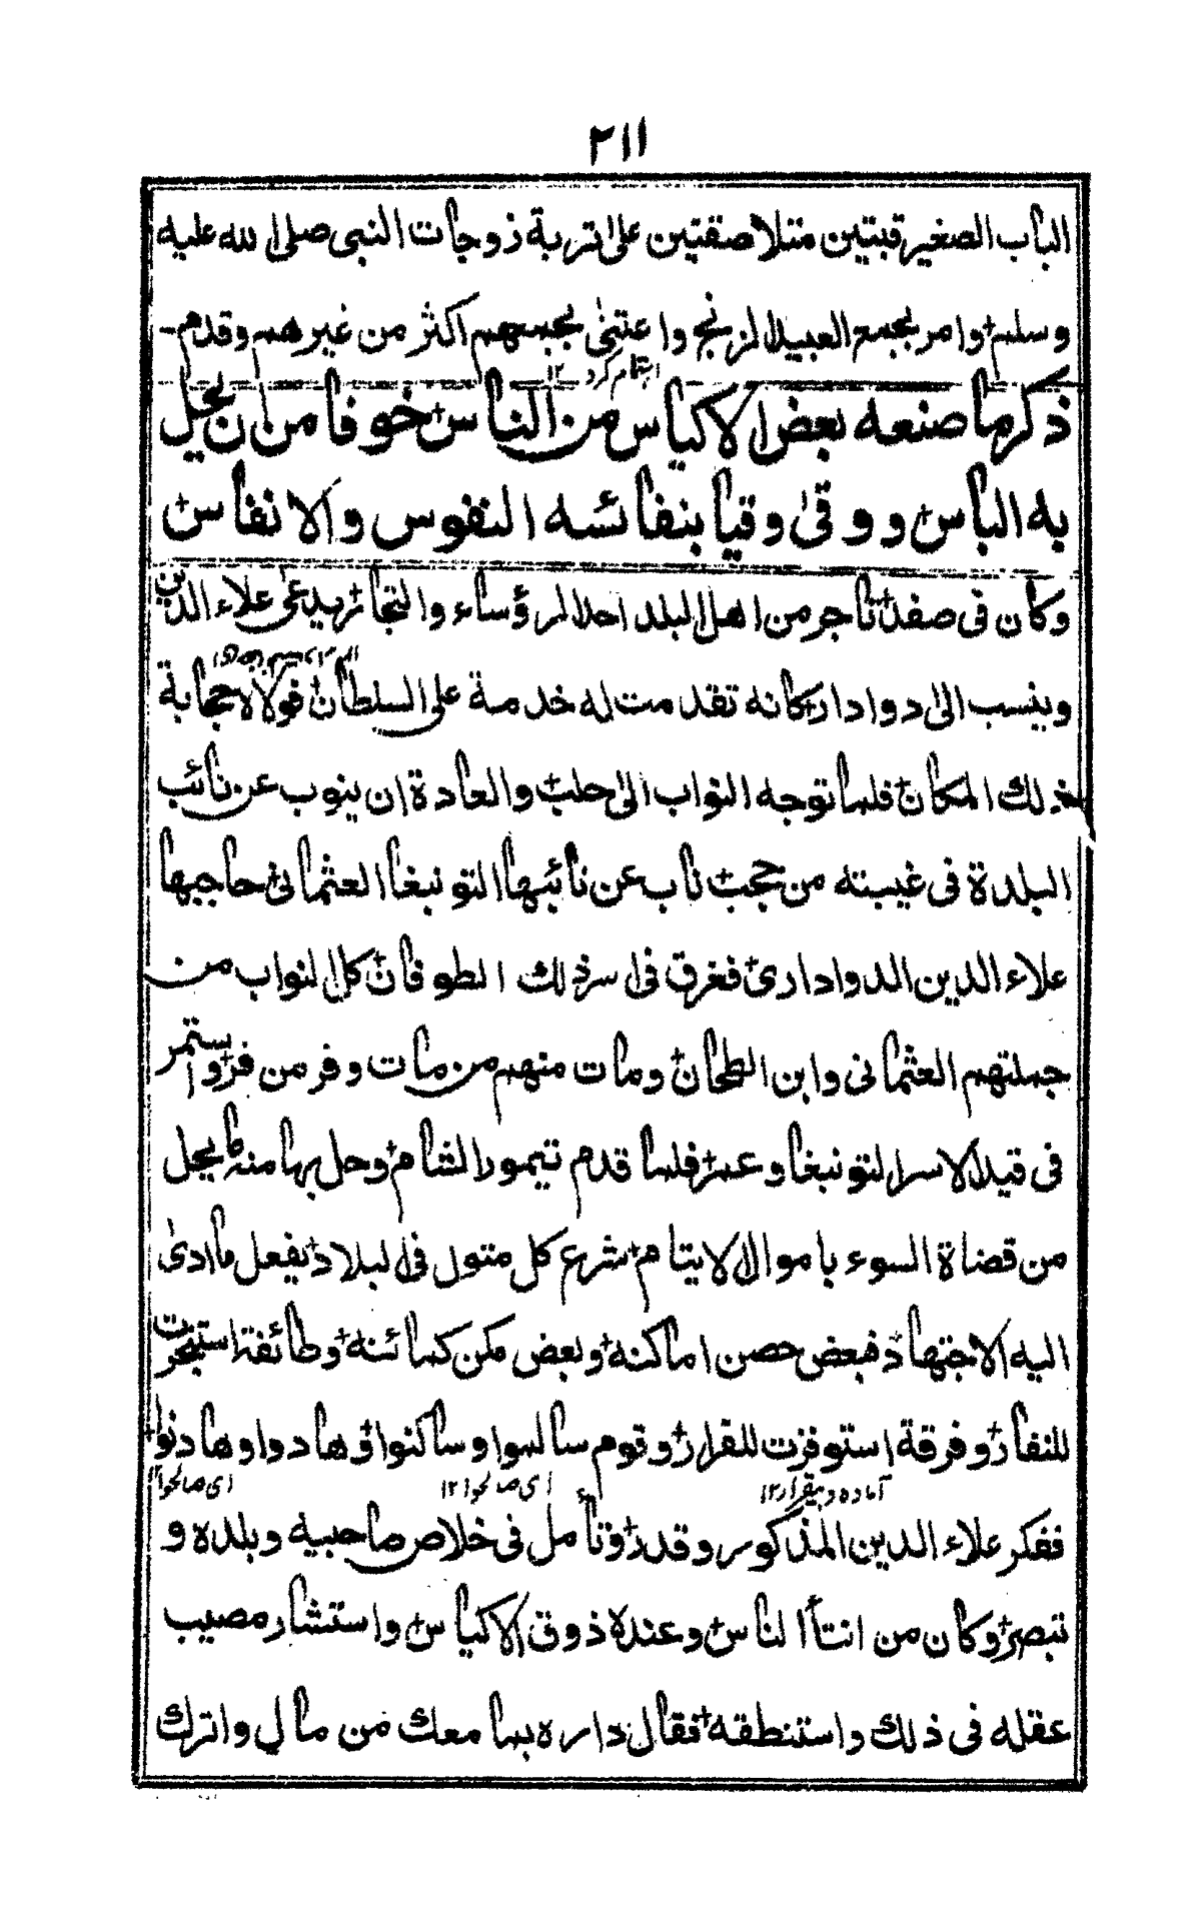 ٢١١
الباب الصغير قبتين متلاصقتين على تربة زوجات النبى صلى الله عليه
وسلم وامر بجمع العبيد الزنج واعتنى بجمعهم اكثر من غيرهم وقدم
اهتمام کرد ١٢
ذكر ما صنعه بعض الاكياس من الناس خوفا من ان يحل
به الباس ووقى وقيا بنفائسه النفوس والانفاس
وكان فى صفد تاجر من اهل البلد احد الرؤساء والتجار يدعى علاء الدين
وينسب الى دوادار كانه تقدمت له خدمة على السلطان فولاه حجابة
ذلك المكان فلما توجه النواب الى حلب والعادة ان ينوب عن نائب
البلدة فى غيبته من حجب ناب عن نائبها التونبغا العثمانى حاجبها
علاء الدين الدوادارى فغرق فى اسر ذلك الطوفان كل النواب من
جملتهم العثمانى وابن الطحان ومات منهم من مات وفر من فر واستمر
فى قيد الاسر التونبغا وعمر فلما قدم تيمور الشام وحل بها منه ما يحل
من قضاة السوء باموال الايتام شرع كل متول فى البلاد يفعل ما ادى
اليه الاجتهاد فبعض حصن اماكنه وبعض مكن كمائنه وطائفة استنجزت
للنفار وفرقة استوفزت للقرار وقوم سالموا وساكنوا وهادوا وهادنوا
آماده و بیقرار ١٢
اى صالحوا ١٢
اى صالحوا ١٢
ففكر علاء الدين المذكور وقدر وتأمل فى خلاص صاحبيه وبلده و
تبصر وكان من انتأ الناس وعنده ذوق الاكياس واستشار مصيب
عقله فى ذلك واستنطقه فقال داره بما معك من مال واترك